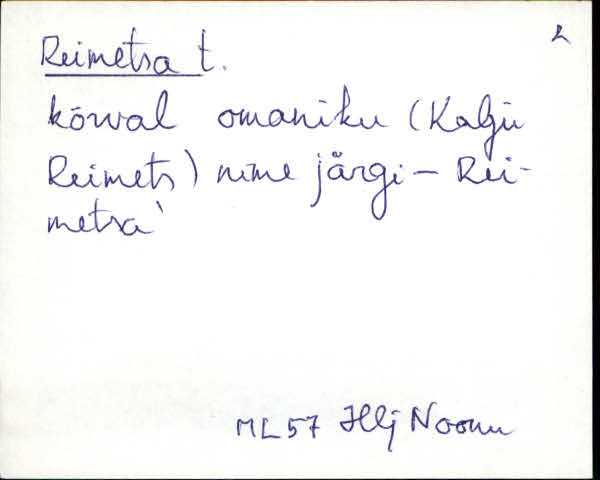 2
Reimetsa t.
kõrval omaniku (Kalju
Reimets) nime järgi – Rei-
metsa`
ML57 Hlj Noomu